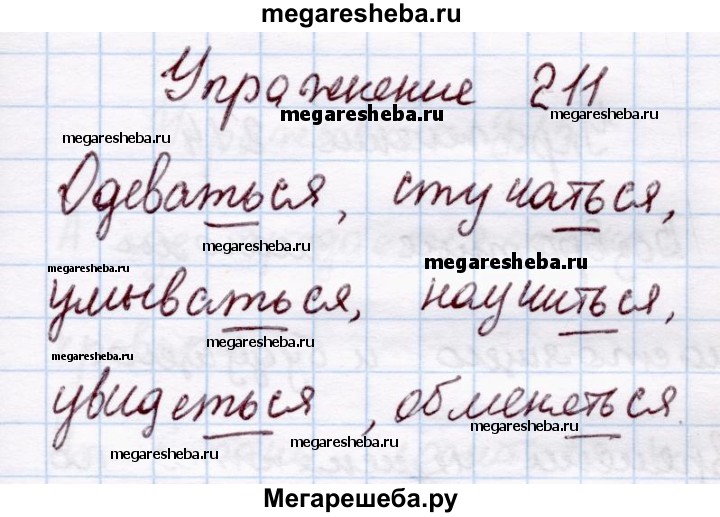 megaresheba.ru
Упражнение 211
megaresheba.ru
megaresheba.ru
Одеваться, стучаться,
megaresheba.ru
megaresheba.ru
megaresheba.ru
умываться, научиться,
megaresheba.ru
megaresheba.ru
увидеться, обменяться
megaresheba.ru
megaresheba.ru
megaresheba.ru
Мегарешеба.ру